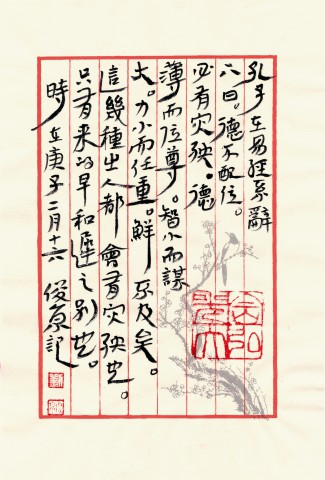 孔子在易经系辭
上曰。德不配位。
必有灾殃。德
薄而位尊。智小而謀
大。力小而任重。鮮不及矣。
這幾種世人都會有灾殃也。
只有来的早和遲之别也。
時在庚子二月十六 俊原記